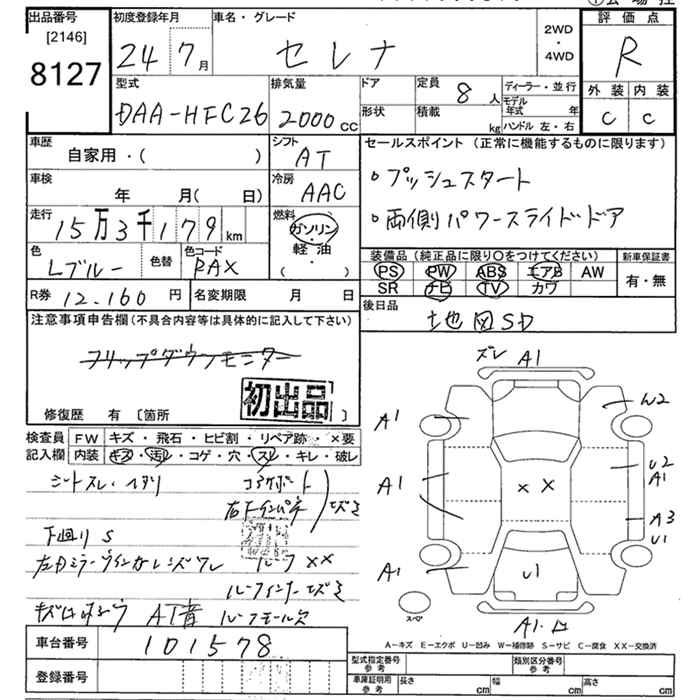 出品番号
[2146]
8127
初度登録年月
24 7月
車名・グレード
セレナ
2WD
・
4WD
評価点
R
外装 内装
C C
型式
DAA-HFC26
排気量
2000cc
ドア
形状
定員
8人
積載
kg
ディーラー・並行
モデル年式 年
ハンドル 左・右
車歴
自家用・( )
シフト
AT
車検
年 月( 日)
冷房
AAC
走行
15万3千179km
燃料
ガソリン
軽・油
( )
色
Lブルー
色替
色コード
RAX
R券 12.160円
名変期限 月 日
セールスポイント (正常に機能するものに限ります)
・プッシュスタート
・両側パワースライドドア
装備品 (純正品に限り〇をつけてください)
PS PW ABS エアB AW
SR ナビ TV カワ
新車保証書
有・無
後日品
地図SD
注意事項申告欄(不具合内容等は具体的に記入して下さい)
フリップダウンモニター
初出品
修復歴 有 〔箇所
検査員記入欄
FW キズ・飛石・ヒビ割・リペア跡・×要
内装 キズ・汚レ・コゲ・穴・スレ・キレ・破レ
シートスレ・ヘタリ
コアサポート
右Fインパネ
下回りS
ルーフ××
AT音 ルーフモール欠
車台番号
101578
登録番号
ズレ A1
A1
W2
A1
U2
A1
××
A3
U1
A1
U1
スペア
A1.
A-キズ E-エクボ U-凹み W-補修跡 S-サビ C-腐食 XX-交換済
型式指定番号 参考
類別区分番号 参考
車庫証明用 参考
長さ cm
幅 cm
高さ cm